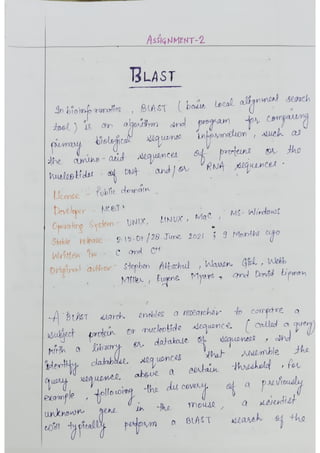 ASSIGNMENT-2
BLAST
In bioinformatics, BLAST (basic local alignment search
tool) is an algorithm and program for comparing
primary biological sequence information, such as
the amino-acid sequences of proteins or the
nucleotides of DNA and/or RNA sequences.
License - Public domain
Developer - NCBI
Operating System - UNIX, LINUX, Mac, MS-Windows
Stable release - 28 June 2021 ; 9 Months ago
Written in - C and C++
Original author - Stephen Altschul, Warren Gish, Webb
Miller, Eugene Myers, and David Lipman
- A BLAST search enables a researcher to compare a
subject protein or nucleotide sequence (called a query)
with a library or database of sequences, and
identify database sequences that resemble the
query sequence above a certain threshold. For
example, following the discovery of a previously
unknown gene in the mouse, a scientist
will typically perform a BLAST search of the